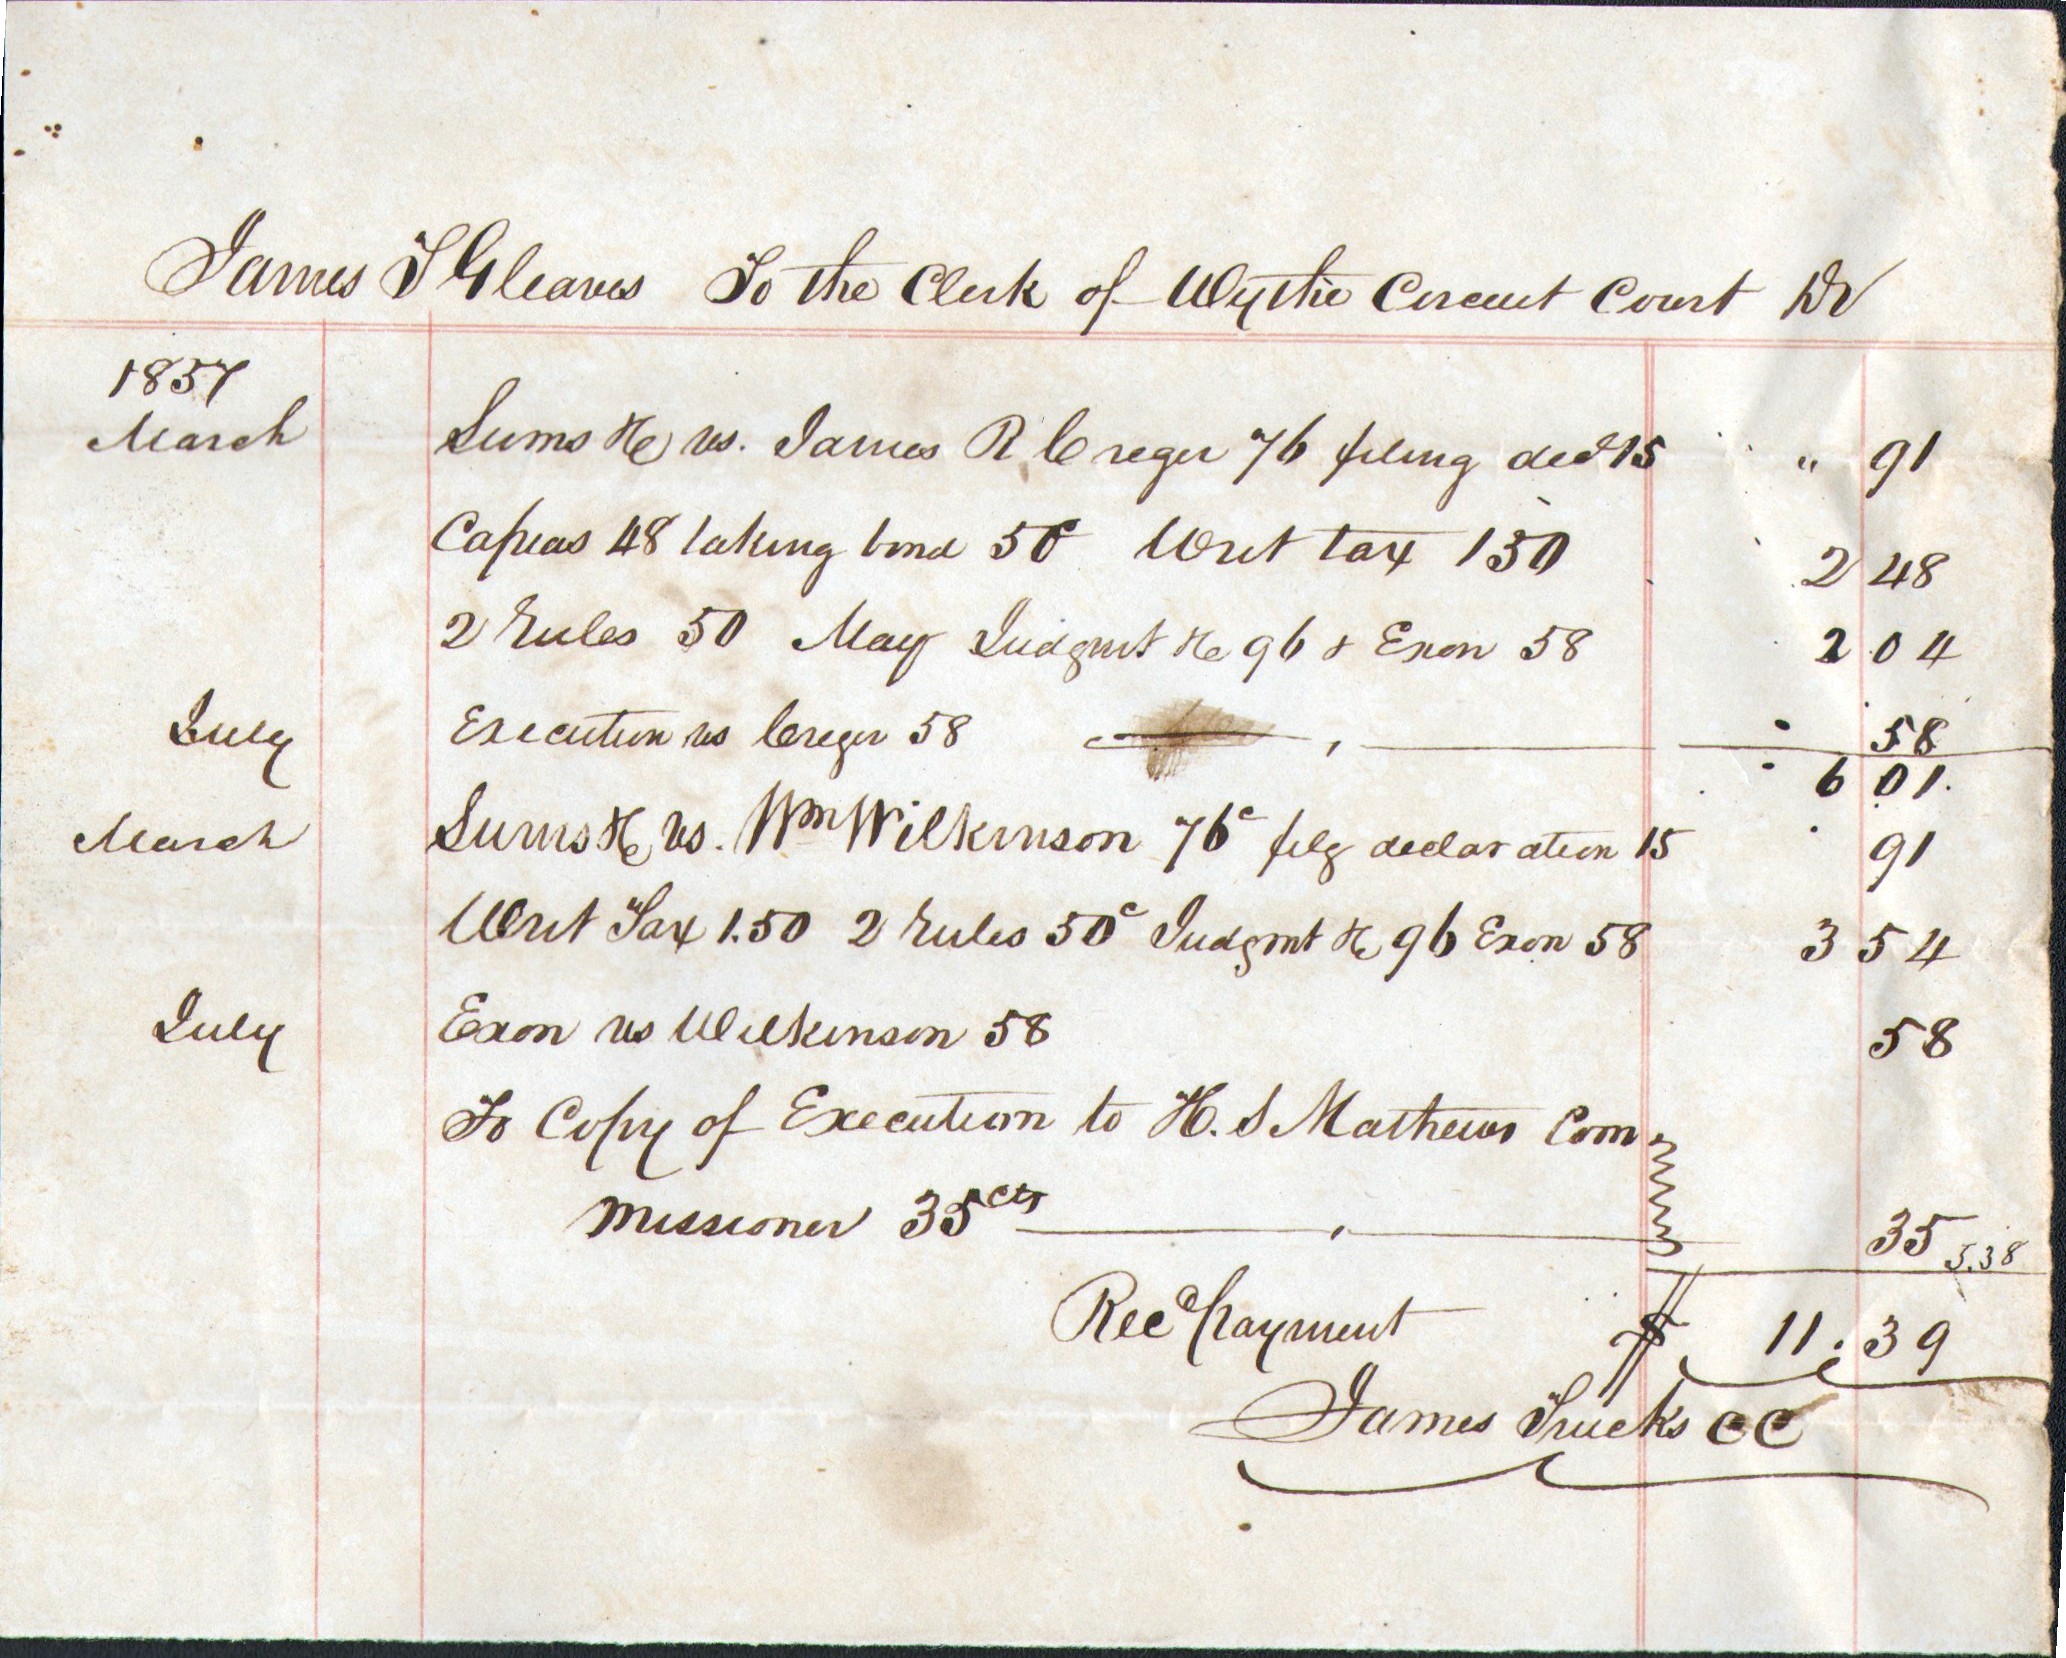 James T Gleaves To the Clerk of Wythe Circuit Court Dr
1857
March Sums &c vs. James R Creger 76 filing decl 15 " 91
Capias 48 taking bond 50c Writ tax 150 2 48
2 Rules 50 May Judgmt &c 96 & Exon 58 2 04
July Execution vs Creger 58 58
6 01.
March Sums &c vs. Wm Wilkinson 76c filg declaration 15 91
Writ Tax 1.50 2 Rules 50c Judgmt &c 96 Exon 58 3 54
July Exon vs Wilkinson 58 58
To Copy of Execution to H. S Mathews Com
missioner 35cts 35 5.38
Recd payment $ 11.39
James Trucks CC